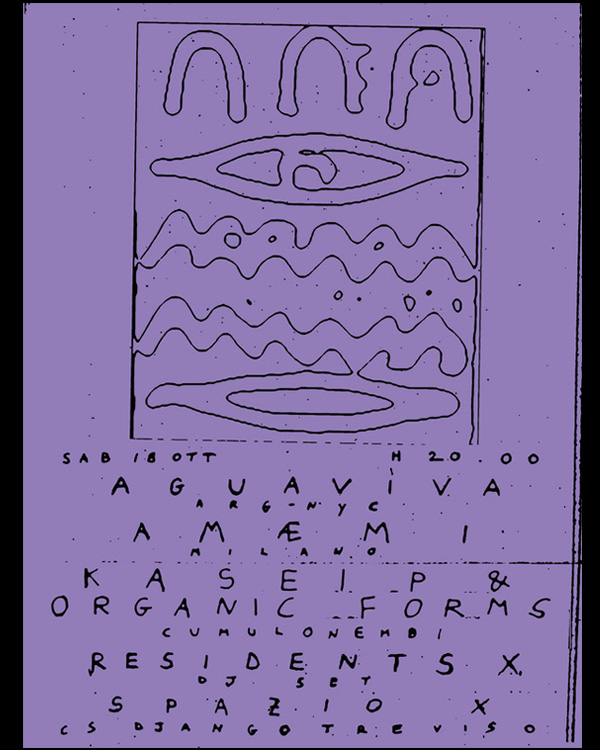 SAB 18 OTT H 20.00
AGUAVIVA
ARG-NYC
AMÆMI
MILANO
KASEIP &
ORGANIC FORMS
CUMULONEMBI
RESIDENTS X
DJ SET
SPAZIO X
CS DJANGO TREVISO